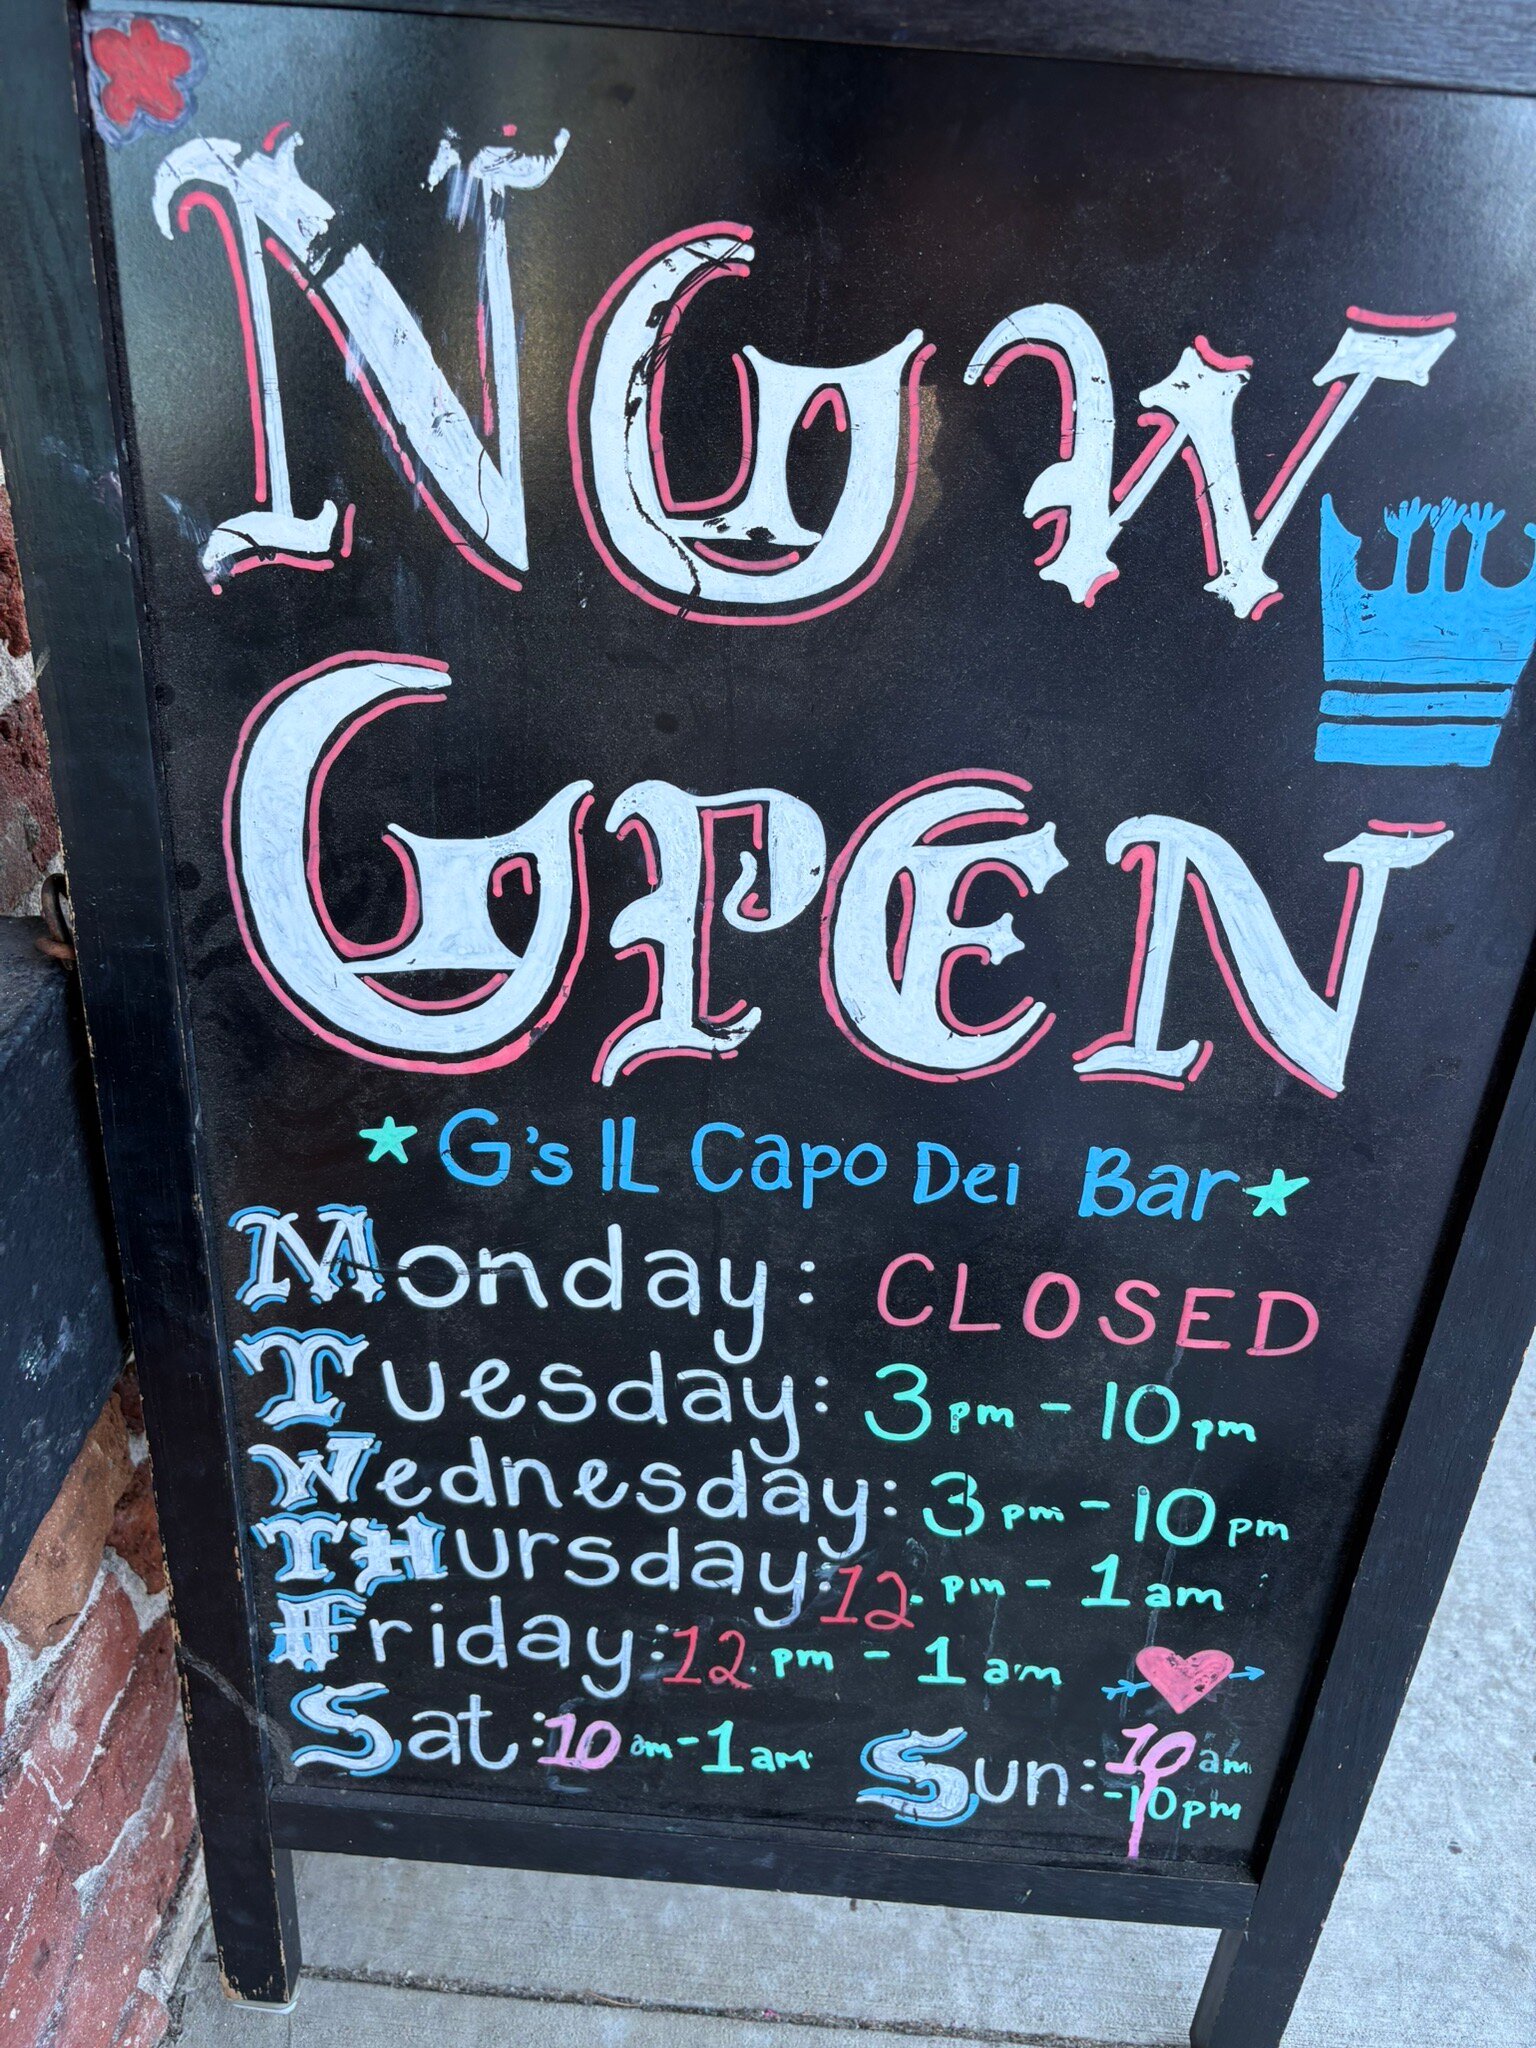 NOW
OPEN
G's IL Capo Dei Bar
Monday: CLOSED
Tuesday: 3pm - 10pm
Wednesday: 3pm - 10pm
THursday: 12 pm - 1am
Friday: 12 pm - 1am
Sat: 10am - 1am
Sun: 10am
- 10pm